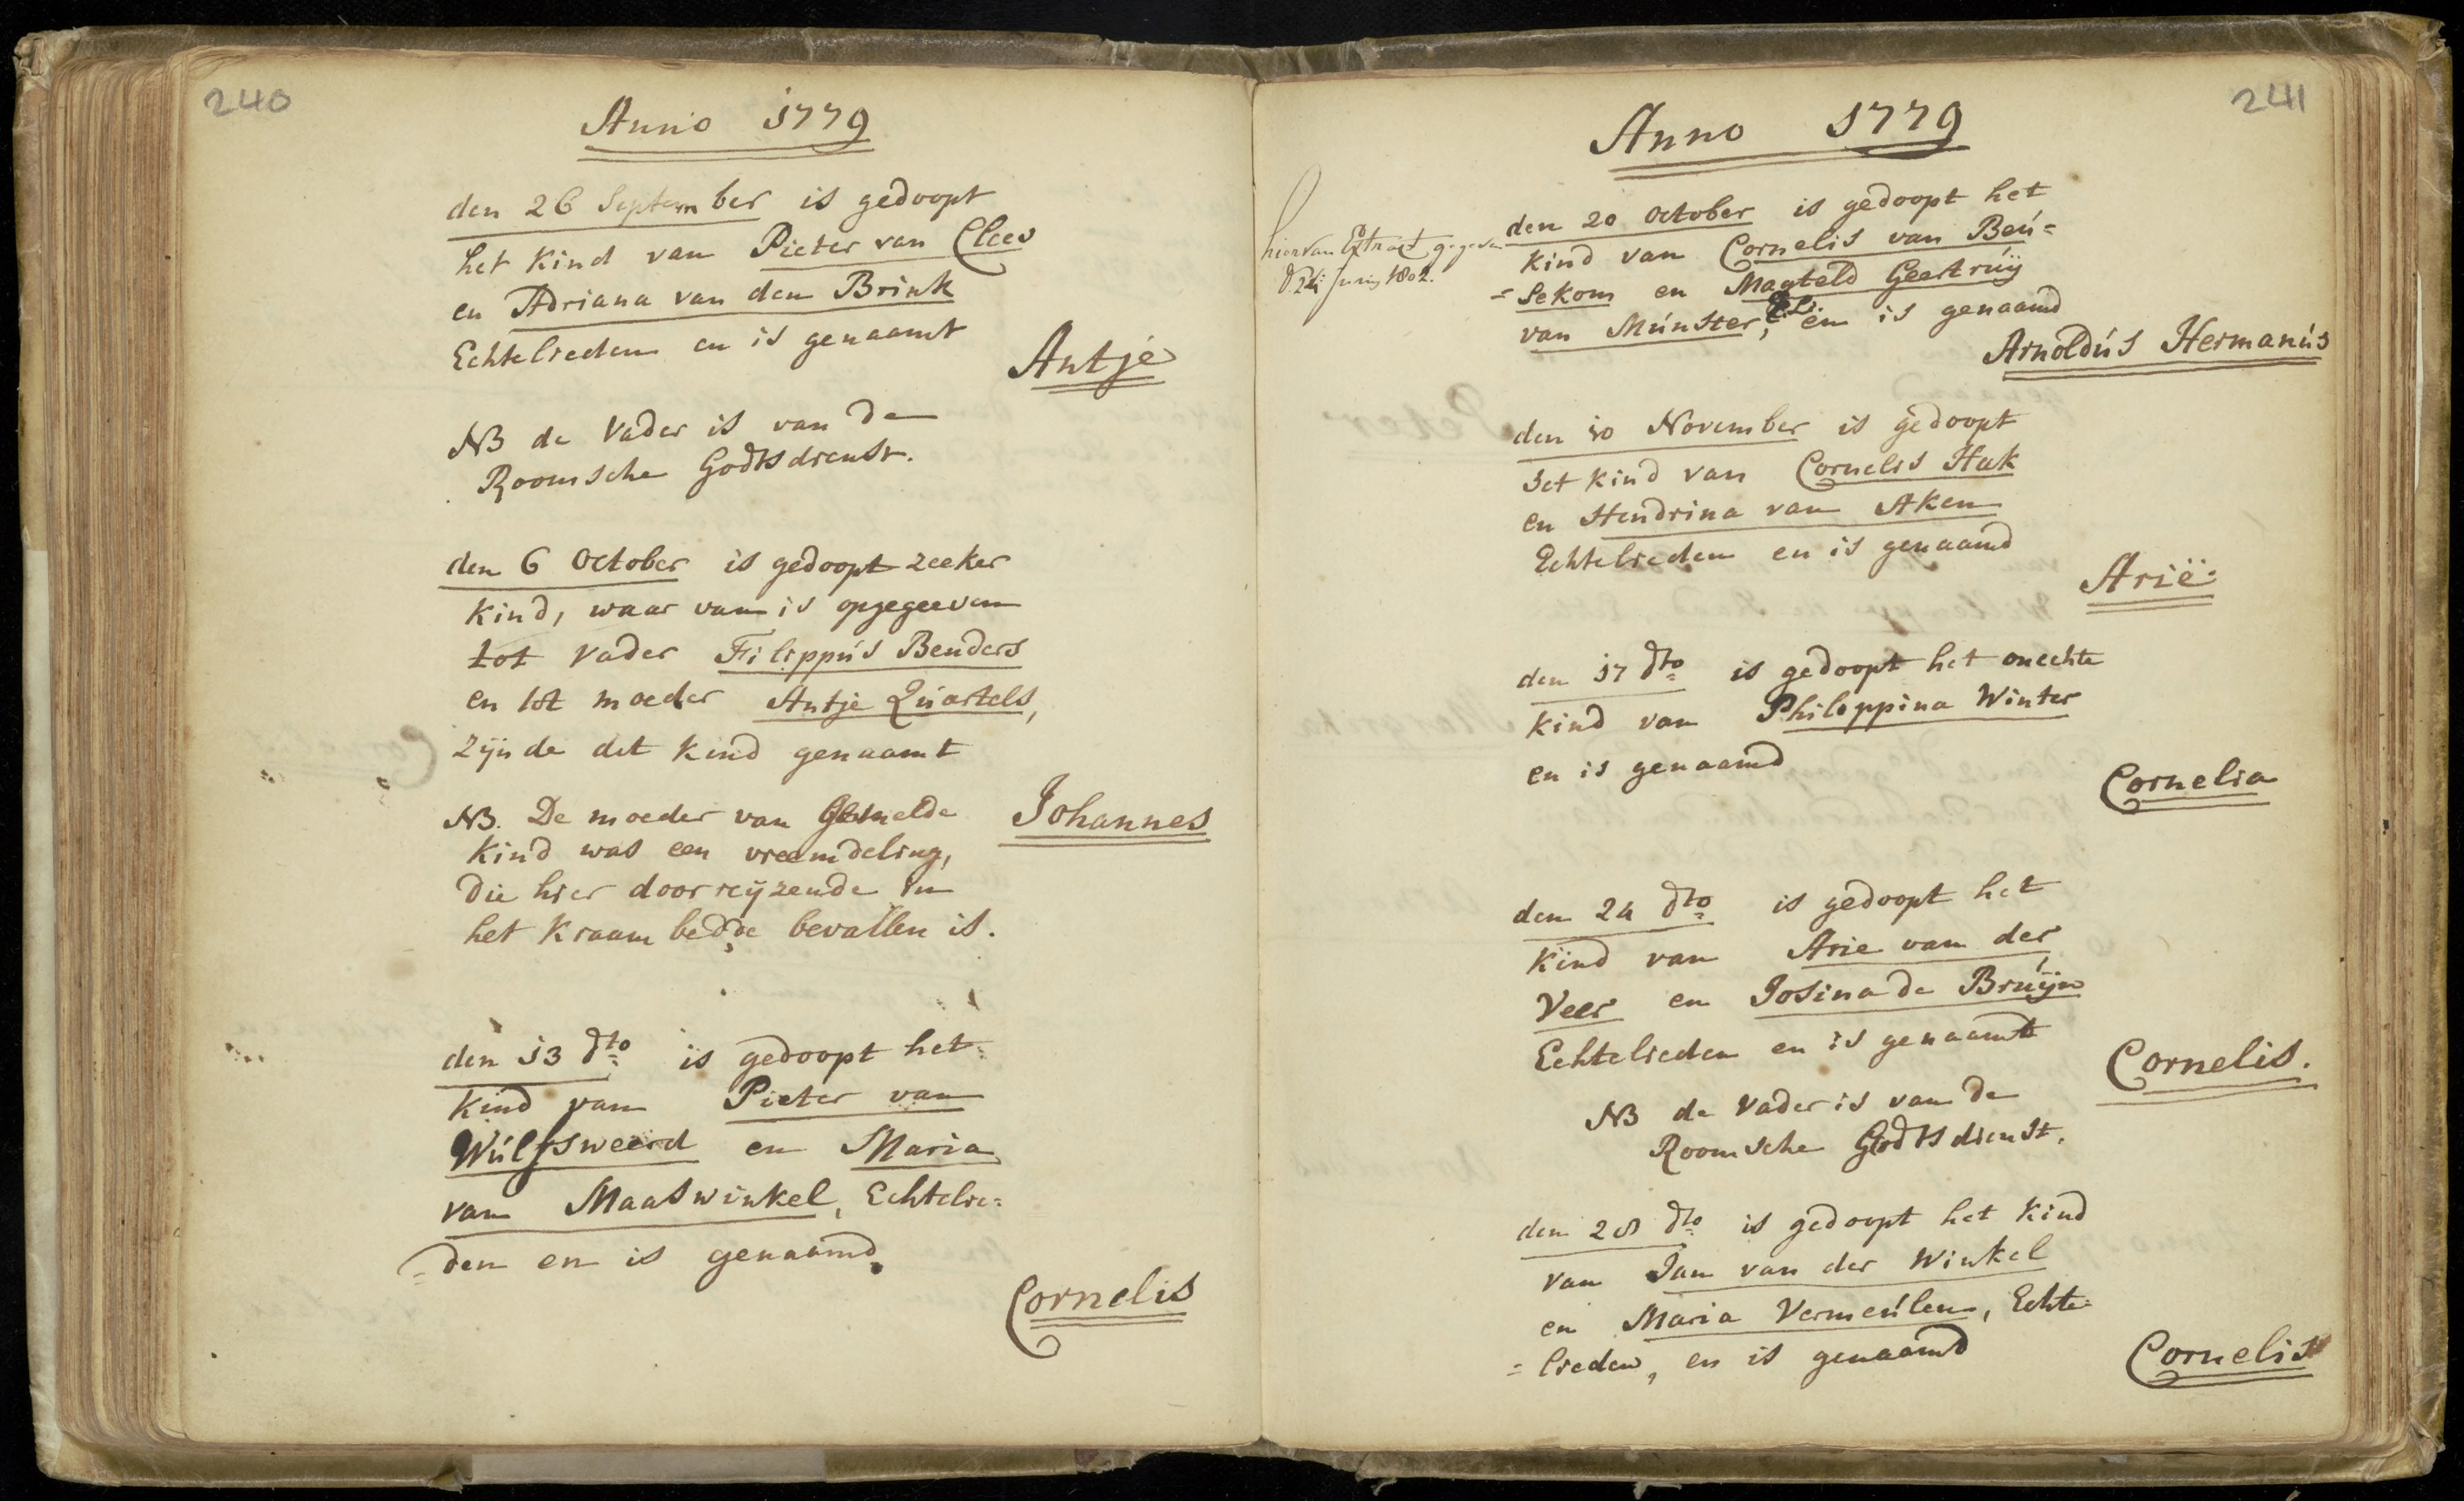 240
Anno 1779
den 26 September is gedoopt
het Kind van Pieter van Clees
en Adriana van den Brink
Echtelieden en is genaamt
Antje
NB de Vader is van de
Roomsche Godtsdienst.
den 6 October is gedoopt zeeker
Kind, waar van is opgegeeven
tot Vader Filippus Benders
en tot moeder Antje Quartels,
zijnde dit Kind genaamt
Johannes
NB. De moeder van Gemelde
Kind was een vreemdeling,
die hier doorreijzende in
het Kraam bedde bevallen is.
den 13 dto is gedoopt het
Kind van Pieter van
Wulfsweerd en Maria
van Maaswinkel, Echtelie=
=den en is genaamd
Cornelis
241
Anno 1779
hiervan Extract gegeven
d. 24 Junij 1802.
den 20 October is gedoopt het
Kind van Cornelis van Beu=
=sekom en Magteld Geertruij
van Munster, E.L. en is genaamd
Arnoldus Hermanus
den 10 November is gedoopt
het Kind van Cornelis Hak
en Hendrina van Aken
Echtelieden en is genaamd
Arië
den 17 dto is gedoopt het onechte
Kind van Philippina Winter
en is genaamd
Cornelia
den 24 dto is gedoopt het
Kind van Arie van der
Veer en Josina de Bruijn
Echtelieden en is genaamt
Cornelis.
NB de Vader is van de
Roomsche Godtsdienst.
den 28 dto is gedoopt het Kind
van Jan van der Winkel
en Maria Vermeulen, Echte
=lieden, en is genaamd
Cornelis